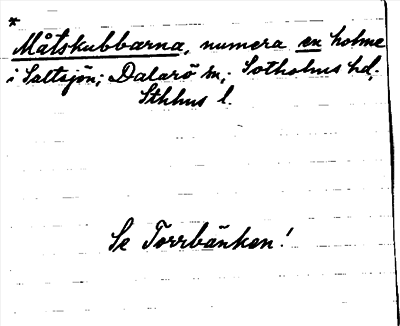 *
Måtskubbarna, numera en holme
i Saltsjön; Dalarö sn; Sotholms hd;
Sthlms l.
Se Torrbänken!